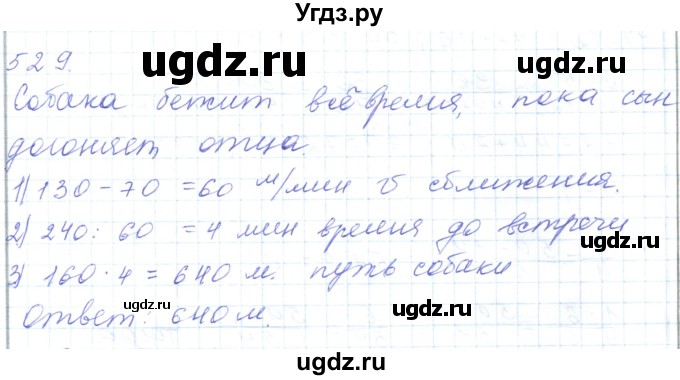 Угдз.ру
529.
ugdz.ru
ugdz.ru
Собака бежит всё время, пока сын
догоняет отца.
1) 130 - 70 = 60 м/мин v сближения.
2) 240 : 60 = 4 мин время до встречи
ugdz.ru
3) 160 · 4 = 640 м. путь собаки
ugdz.ru
ugdz.ru
Ответ: 640 м.
ugdz.ru